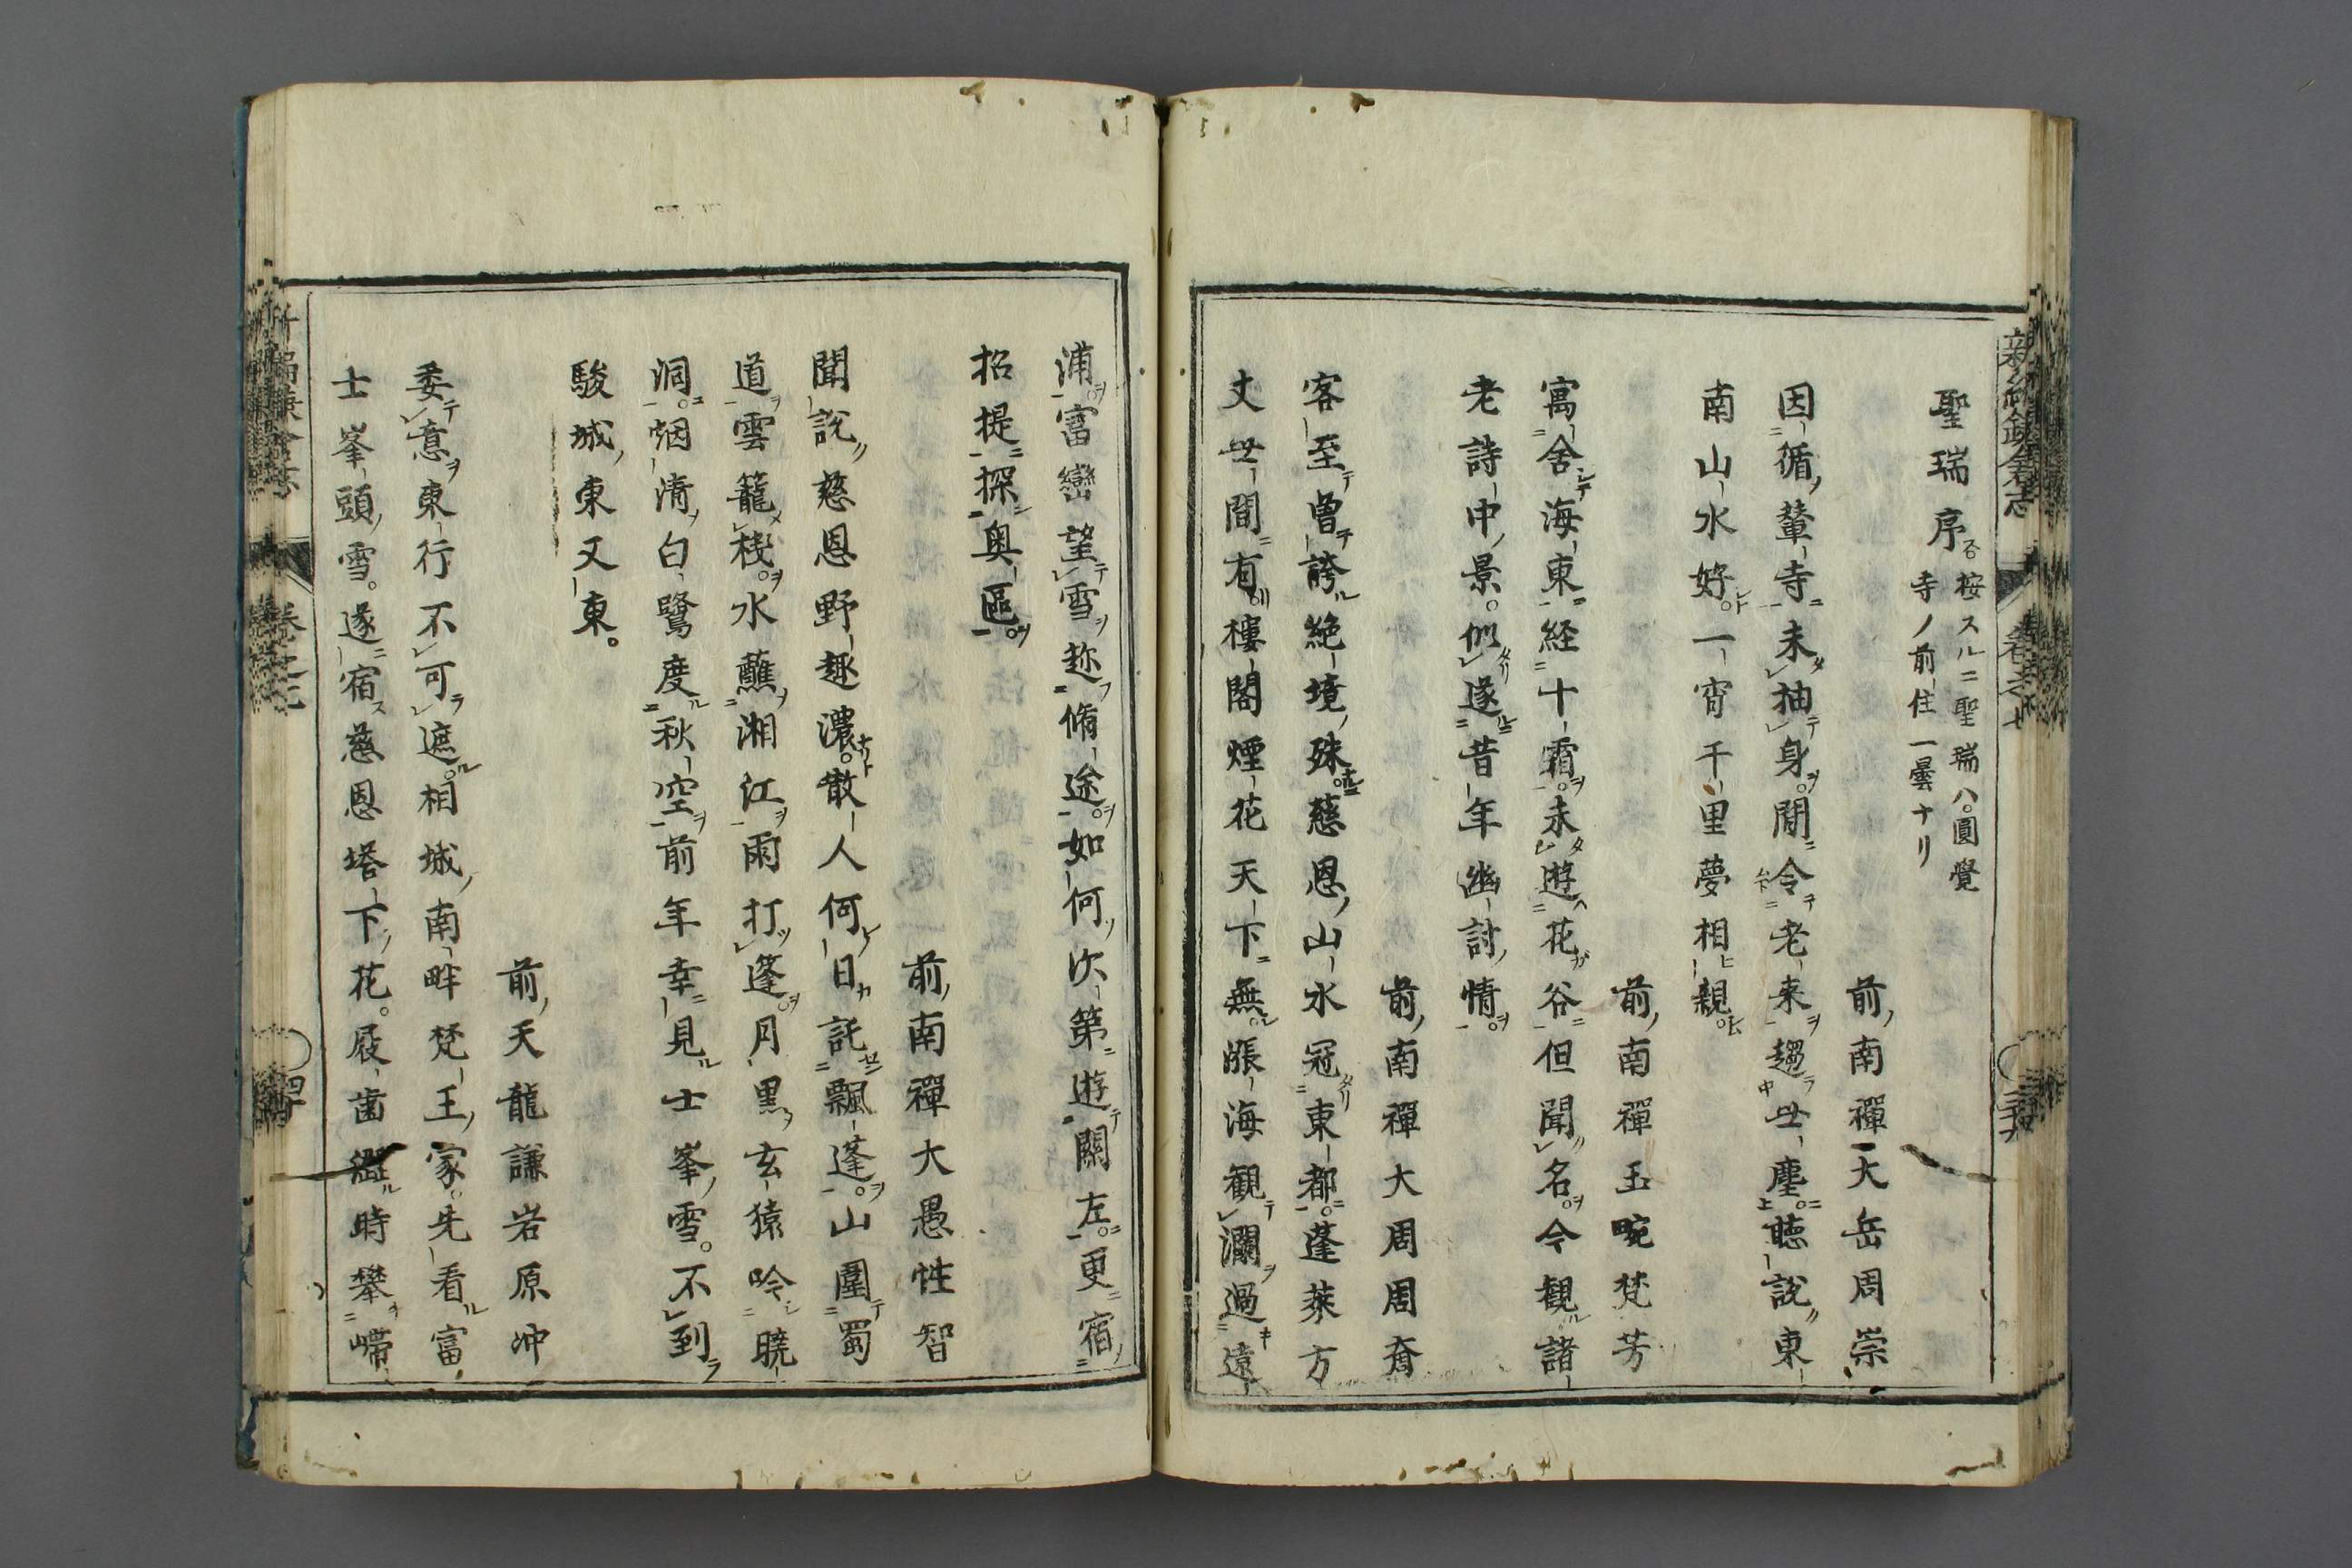 聖瑞序 按スルニ聖瑞ハ圓覺
寺ノ前住一曇ナリ
前南禪大岳周崇
因循輦寺未抽身閒令老来趨世塵聴説東
南山水好一宵千里夢相親
前南禪玉畹梵芳
寓舍海東経十霜未遊花谷但聞名今観諸
老詩中景似遂昔年幽討情
前南禪大周周奝
客至曽誇絶境殊慈恩山水冠東都蓬萊方
丈世間有樓閣煙花天下無漲海観瀾過遠
浦富巒望雪趂脩途如何次第遊關左更宿
招提探奥區
前南禪大愚性智
聞說慈恩野趣濃散人何日託飄蓬山圍蜀
道雲籠棧水蘸湘江雨打蓬月黒玄猿吟曉
洞烟清白鷺度秋空前年幸見士峯雪不到
駿城東又東
前天龍謙岩原冲
委意東行不可遮相城南畔梵王家先看富
士峯頭雪遂宿慈恩塔下花屐歯澀時攀嶗
新編鎌倉志 卷之七